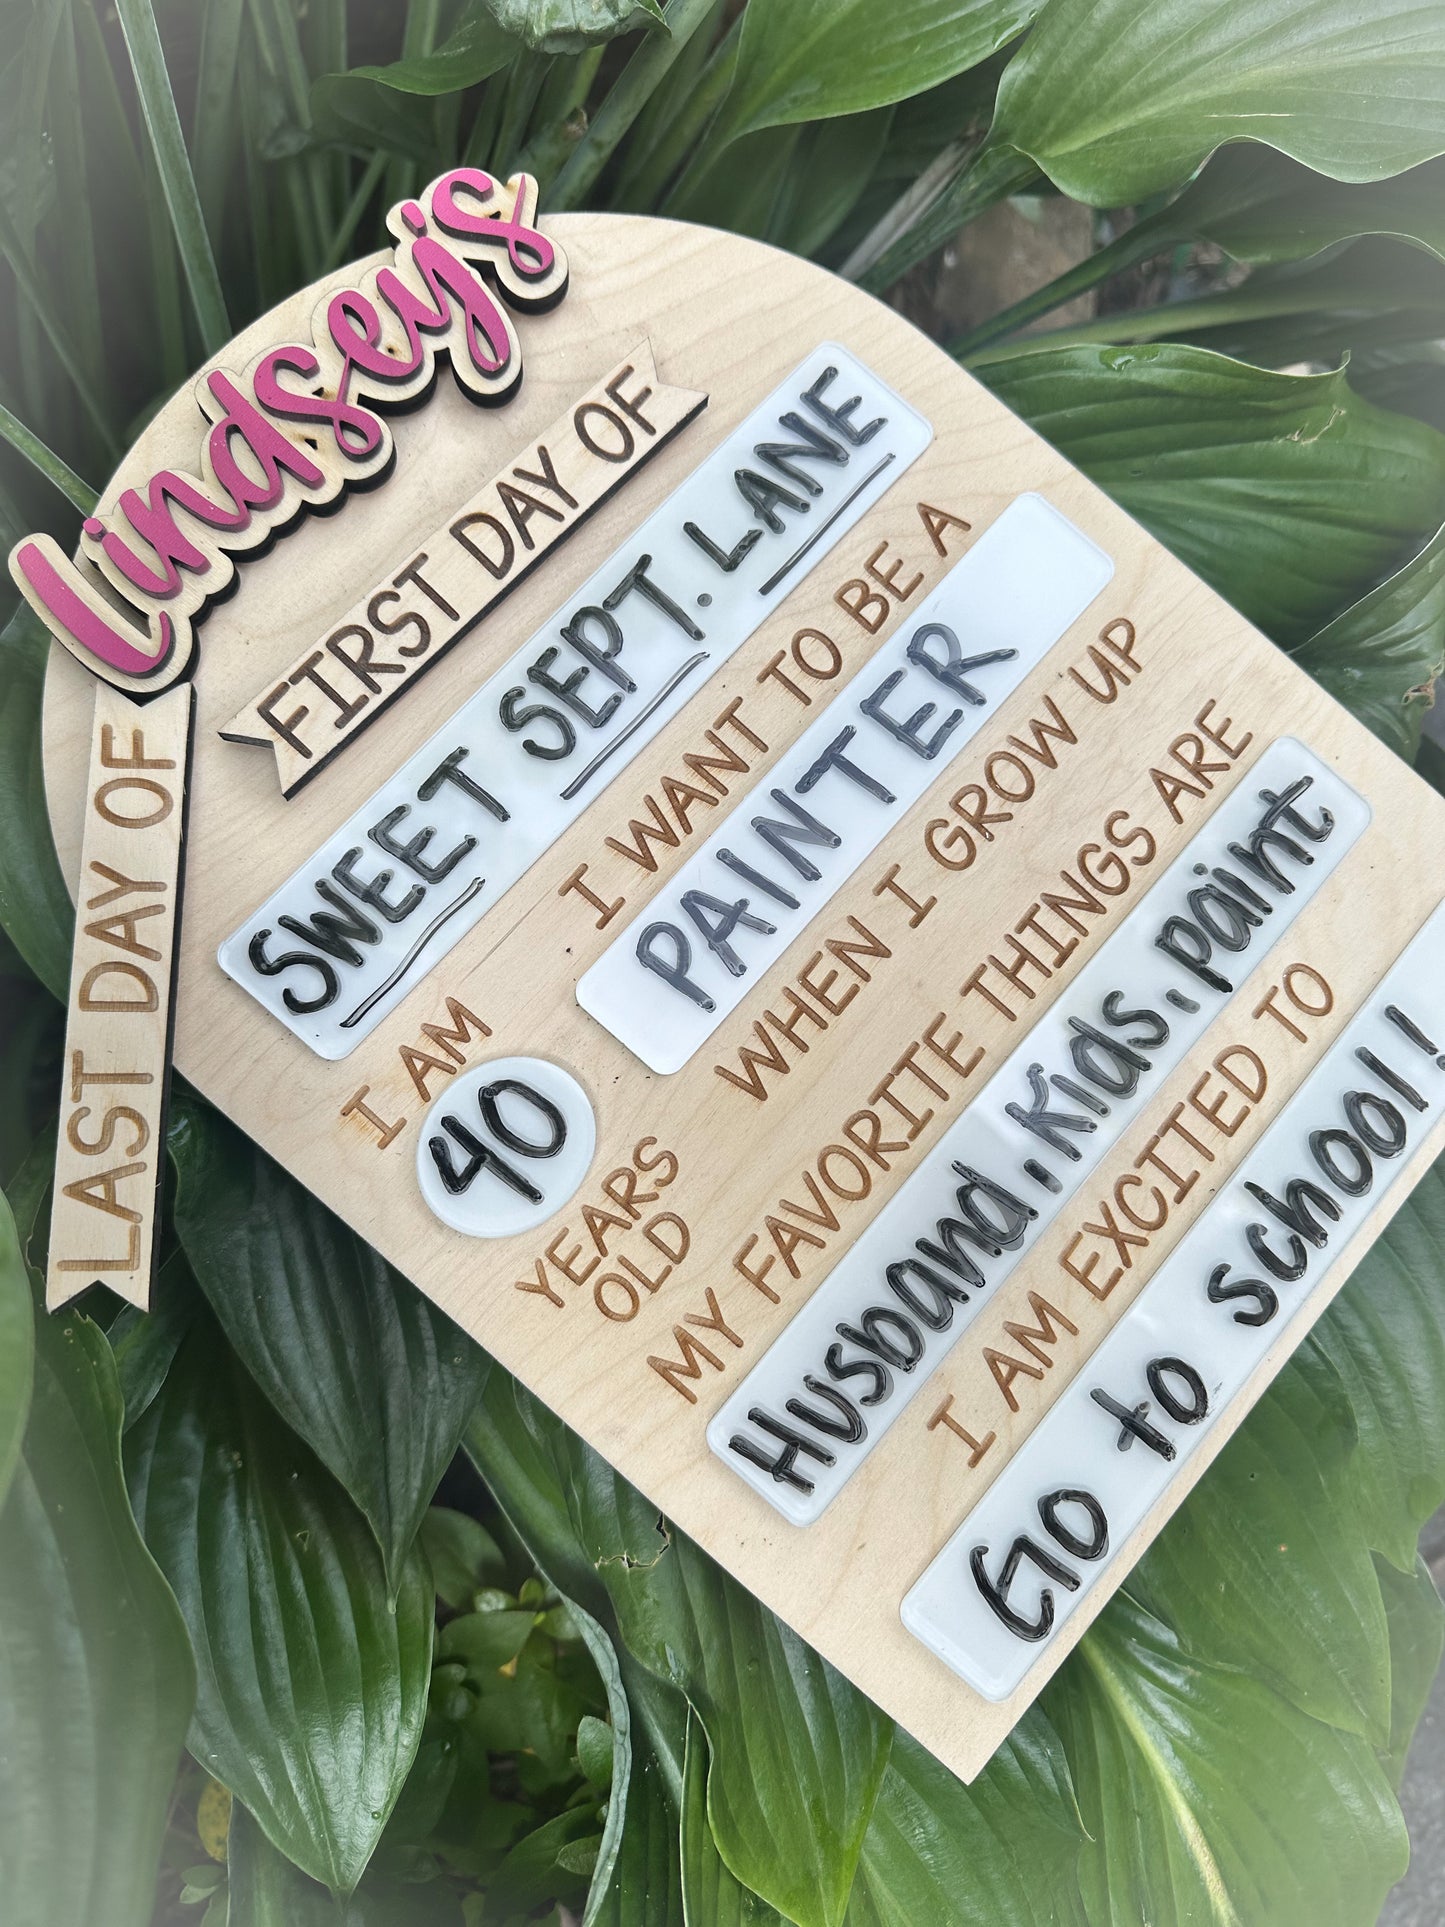 Lindsey's
FIRST DAY OF
LAST DAY OF
SWEET SEPT. LANE
I AM
40
YEARS
OLD
I WANT TO BE A
PAINTER
WHEN I GROW UP
MY FAVORITE THINGS ARE
Husband, Kids, paint
I AM EXCITED TO
Go to school!